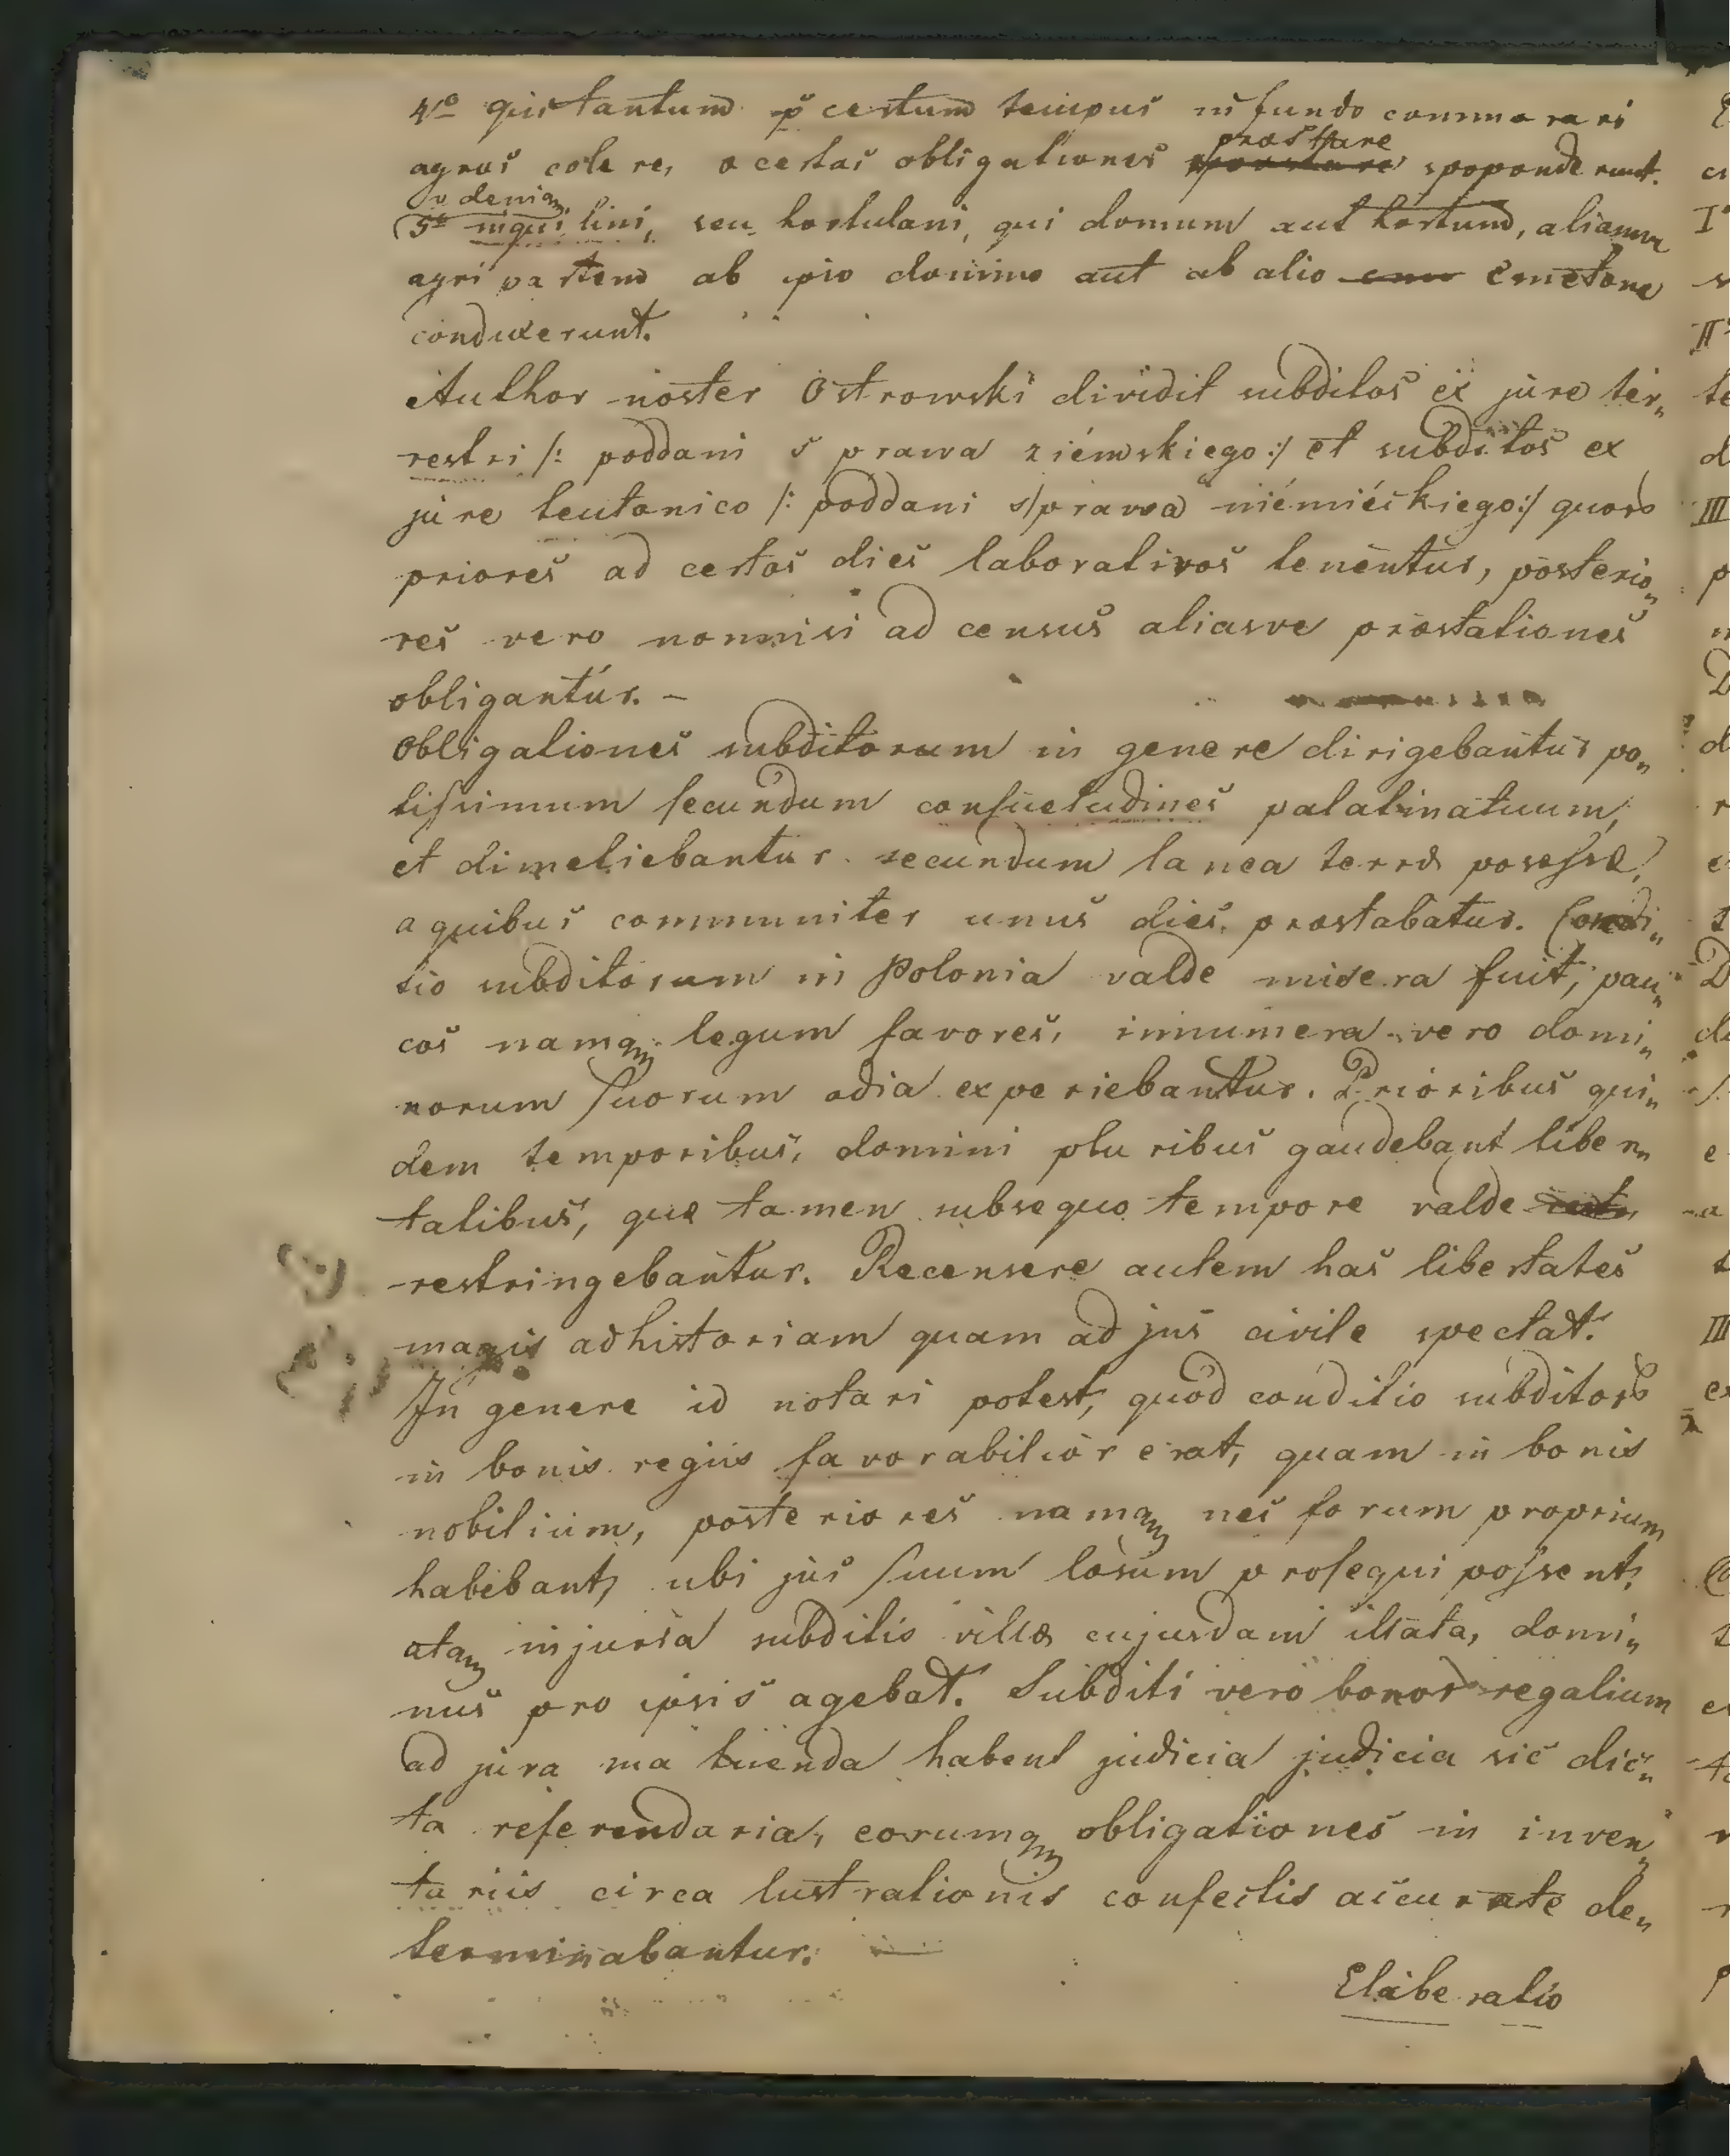 4to qui tantum p̄ certum tempus in fundo commorari
agros colere, a certas obligationes præstare spoponderunt.
5to inquilini, seu hortulani, qui domum aut hortum, aliamve
agri partem ab ipso domino aut ab alio cmetone
conduxerunt.
Author noster Ostrowski dividit subditos ex jure ter„
restri /: poddani s prawa ziémskiego :/ et subditos ex
jure teutonico /: poddani s prawa niémiéckiego :/ quor͠
priores ad certos dies laborativos tenentur, posterio„
res vero nonnisi ad census aliasve præstationes
obligantur. –
Obligationes subditorum in genere dirigebantur po„
tiſsimum ſecundum conſuetudines palatinatuum,
et dimetiebantur secundum lanea terræ poseſsæ,
a quibus communiter unus dies præstabatur. Condi„
tio subditorum in Polonia valde misera fuit, pau„
cos namq legum favores, innumera vero domi„
norum ſuorum odia experiebantur. Prioribus qui„
dem temporibus, domini pluribus gaudebant liber„
tatibus, quæ tamen subsequo tempore valde
restringebantur. Recensere autem has libertates
magis ad historiam quam ad jus civile spectat.
In genere id notari potest, quod conditio subditor͠
in bonis regiis favorabilior erat, quam in bonis
nobilium, posteriores namq nec forum proprium
habebant, ubi jus ſuum læsum proſequi poſsent,
atq injuria subditis villæ cujusdam illata, domi„
nus pro ipsis agebat. Subditi vero bonor͠ regalium
ad jura sua tuenda habent judicia judicia sic dic„
ta referendaria, eorumq obligationes in inven„
tariis circa lustrationis confectis accurate de„
terminabantur. —
Elaberatio